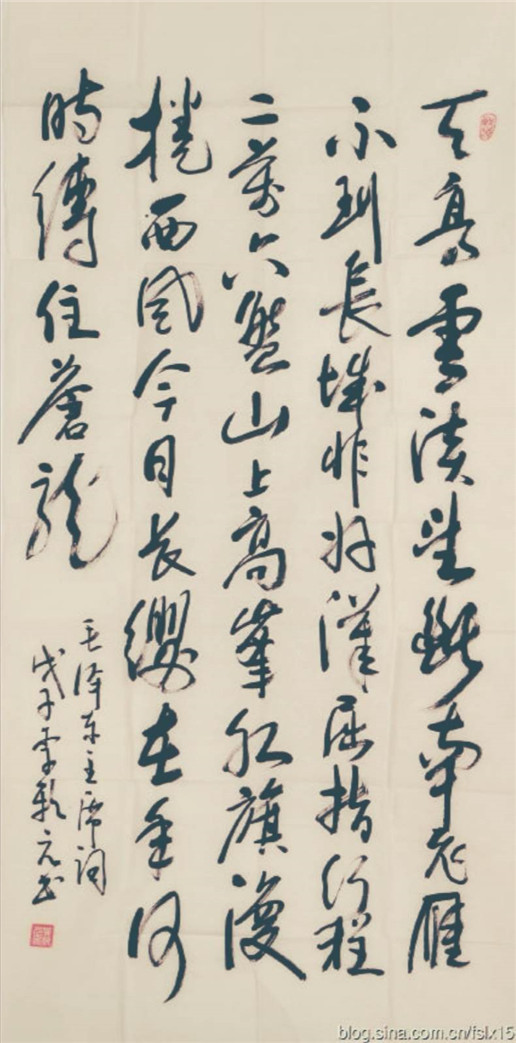 天高雲淡望斷南飛雁
不到長城非好漢屈指行程
二萬六盤山上高峯紅旗漫
捲西風今日长纓在手何
時縛住蒼龍
毛泽东主席词
戊子李乾元书
blog.sina.com.cn/fslx15